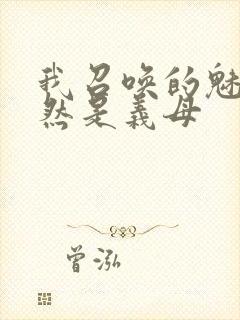 我召唤的魅
然是义母
曾泓